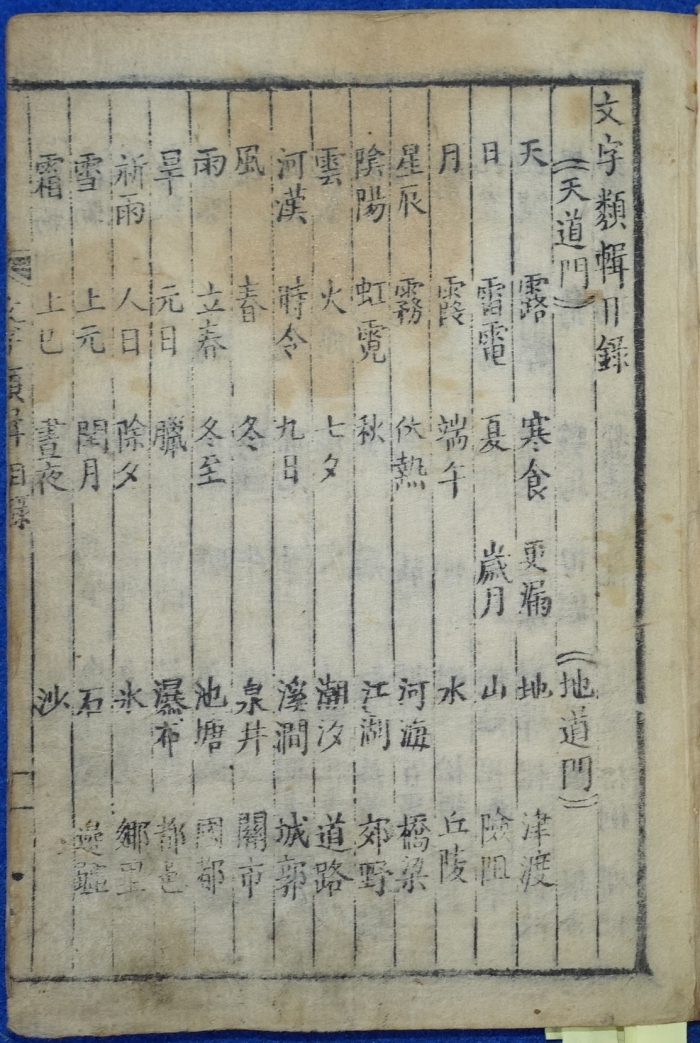 文字類輯目錄
天道門 地道門
天 露 寒食 更漏 地 津渡
日 雷電 夏 歲月 山 險阻
月 霞 端午 水 丘陵
星辰 霧 伏熱 河海 橋梁
陰陽 虹霓 秋 江湖 郊野
雲 火 七夕 潮汐 道路
河漢 時令 九日 溪澗 城郭
風 春 冬 泉井 關市
雨 立春 冬至 池塘 國都
旱 元日 臘 瀑布 都邑
祈雨 人日 除夕 氷 鄉里
雪 上元 閏月 石
霜 上巳 晝夜 沙
文字類輯目錄